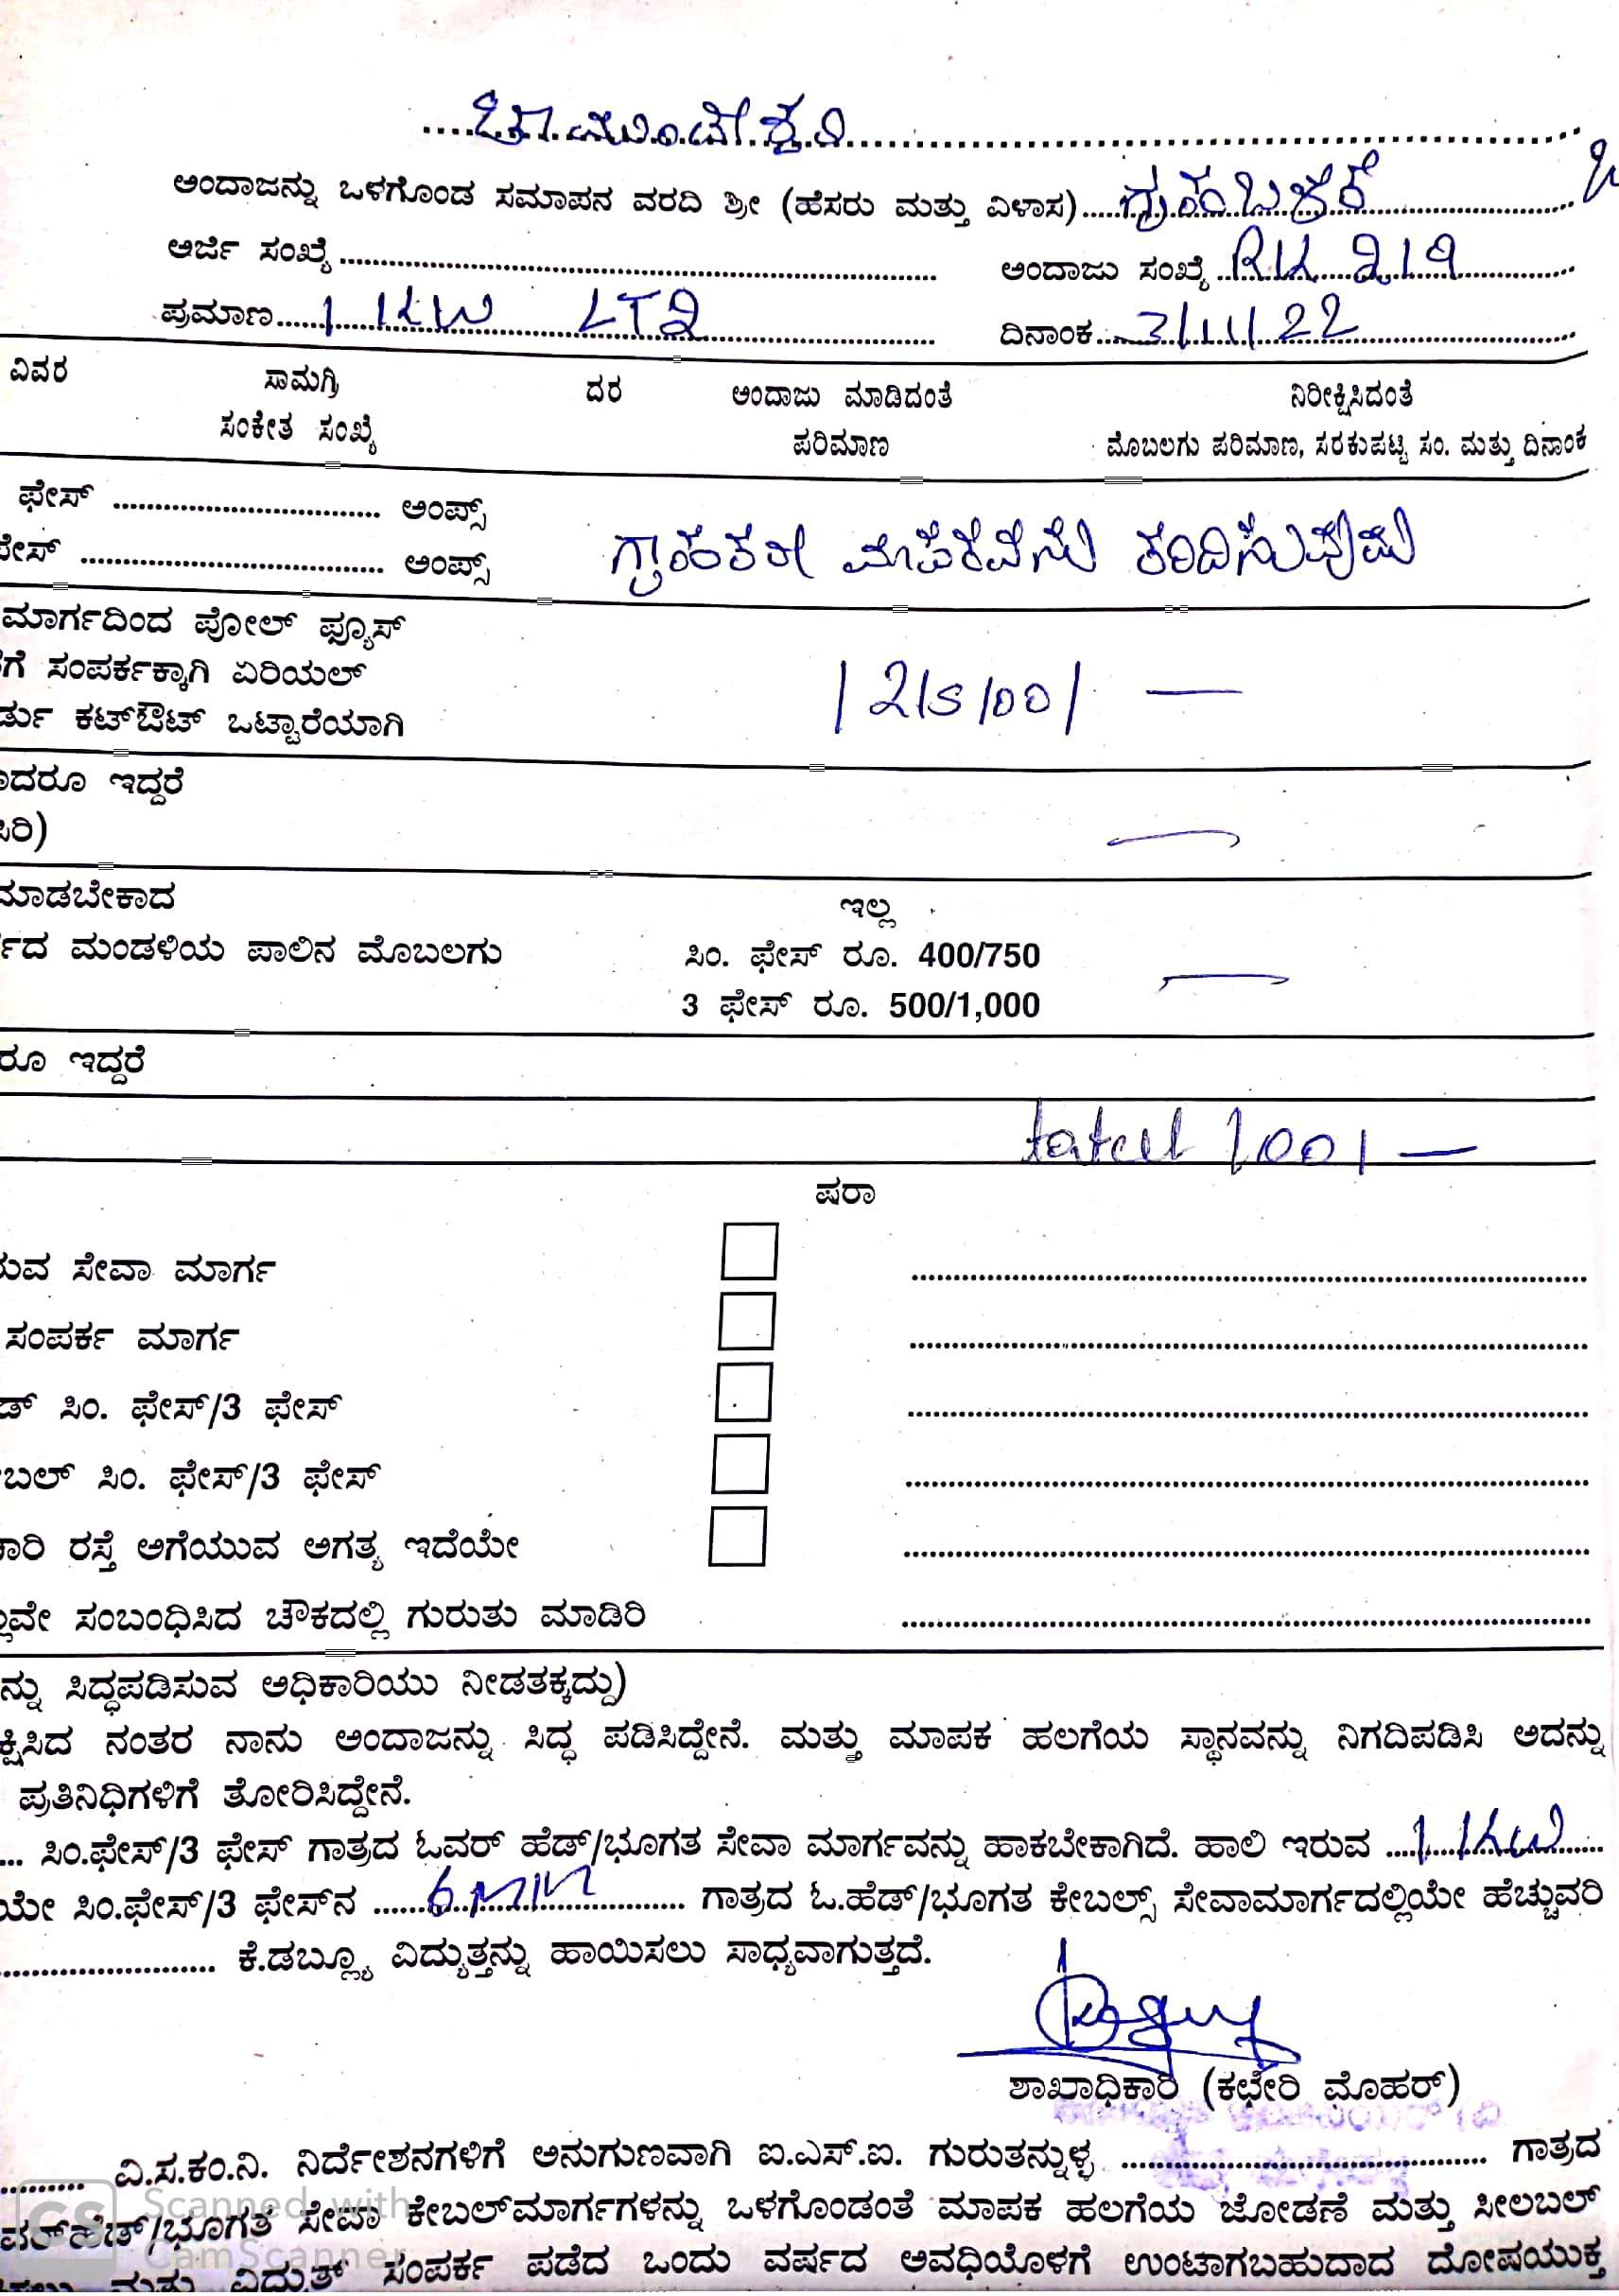 ಚಾಮುಂಡೇಶ್ವರಿ
ಅಂದಾಜನ್ನು ಒಳಗೊಂಡ ಸಮಾಪನ ವರದಿ ಶ್ರೀ (ಹೆಸರು ಮತ್ತು ವಿಳಾಸ)
ಅರ್ಜಿ ಸಂಖ್ಯೆ ಅಂದಾಜು ಸಂಖ್ಯೆ 219
ಪ್ರಮಾಣ 1 KW LT2 ದಿನಾಂಕ 3/11/22
ವಿವರ ಸಾಮಗ್ರಿ ದರ ಅಂದಾಜು ಮಾಡಿದಂತೆ ನಿರೀಕ್ಷಿಸಿದಂತೆ
ಸಂಕೇತ ಸಂಖ್ಯೆ ಪರಿಮಾಣ ಮೊಬಲಗು ಪರಿಮಾಣ, ಸರಕುಪಟ್ಟಿ ಸಂ. ಮತ್ತು ದಿನಾಂಕ
ಫೇಸ್ ಅಂಪ್ಸ್
ಫೇಸ್ ಅಂಪ್ಸ್
ಮಾರ್ಗದಿಂದ ಪೋಲ್ ಫ್ಯೂಸ್
ಗೆ ಸಂಪರ್ಕಕ್ಕಾಗಿ ಏರಿಯಲ್
ರ್ಡು ಕಟ್‌ಔಟ್ ಒಟ್ಟಾರೆಯಾಗಿ
ಾದರೂ ಇದ್ದರೆ
ಸಿರಿ)
ಮಾಡಬೇಕಾದ ಇಲ್ಲ
ರ್ದ ಮಂಡಳಿಯ ಪಾಲಿನ ಮೊಬಲಗು ಸಿಂ. ಫೇಸ್ ರೂ. 400/750
3 ಫೇಸ್ ರೂ. 500/1,000
ರೂ ಇದ್ದರೆ
100/-
ಷರಾ
ರುವ ಸೇವಾ ಮಾರ್ಗ
ಸಂಪರ್ಕ ಮಾರ್ಗ
ಡ್ ಸಿಂ. ಫೇಸ್/3 ಫೇಸ್
ಬಲ್ ಸಿಂ. ಫೇಸ್/3 ಫೇಸ್
ಕಾರಿ ರಸ್ತೆ ಅಗೆಯುವ ಅಗತ್ಯ ಇದೆಯೇ
ಲ್ಲವೇ ಸಂಬಂಧಿಸಿದ ಚೌಕದಲ್ಲಿ ಗುರುತು ಮಾಡಿರಿ
ನ್ನು ಸಿದ್ಧಪಡಿಸುವ ಅಧಿಕಾರಿಯು ನೀಡತಕ್ಕದ್ದು)
ಕ್ಷಿಸಿದ ನಂತರ ನಾನು ಅಂದಾಜನ್ನು ಸಿದ್ಧ ಪಡಿಸಿದ್ದೇನೆ. ಮತ್ತು ಮಾಪಕ ಹಲಗೆಯ ಸ್ಥಾನವನ್ನು ನಿಗದಿಪಡಿಸಿ ಅದನ್ನು
ಪ್ರತಿನಿಧಿಗಳಿಗೆ ತೋರಿಸಿದ್ದೇನೆ.
ಸಿಂ.ಫೇಸ್/3 ಫೇಸ್ ಗಾತ್ರದ ಓವರ್ ಹೆಡ್/ಭೂಗತ ಸೇವಾ ಮಾರ್ಗವನ್ನು ಹಾಕಬೇಕಾಗಿದೆ. ಹಾಲಿ ಇರುವ 1 KW
ಯೇ ಸಿಂ.ಫೇಸ್/3 ಫೇಸ್‌ನ ಗಾತ್ರದ ಓ.ಹೆಡ್/ಭೂಗತ ಕೇಬಲ್ಸ್ ಸೇವಾಮಾರ್ಗದಲ್ಲಿಯೇ ಹೆಚ್ಚುವರಿ
ಕೆ.ಡಬ್ಲ್ಯೂ ವಿದ್ಯುತ್ತನ್ನು ಹಾಯಿಸಲು ಸಾಧ್ಯವಾಗುತ್ತದೆ.
ಶಾಖಾಧಿಕಾರಿ (ಕಛೇರಿ ಮೊಹರ್)
ವಿ.ಸ.ಕಂ.ನಿ. ನಿರ್ದೇಶನಗಳಿಗೆ ಅನುಗುಣವಾಗಿ ಐ.ಎಸ್.ಐ. ಗುರುತನ್ನುಳ್ಳ ಗಾತ್ರದ
ವರ್‌ಹೆಡ್/ಭೂಗತ ಸೇವಾ ಕೇಬಲ್‌ಮಾರ್ಗಗಳನ್ನು ಒಳಗೊಂಡಂತೆ ಮಾಪಕ ಹಲಗೆಯ ಜೋಡಣೆ ಮತ್ತು ಸೀಲಬಲ್
ಮತ್ತು ವಿದ್ಯುತ್ ಸಂಪರ್ಕ ಪಡೆದ ಒಂದು ವರ್ಷದ ಅವಧಿಯೊಳಗೆ ಉಂಟಾಗಬಹುದಾದ ದೋಷಯುಕ್ತ
CS Scanned with
CamScanner